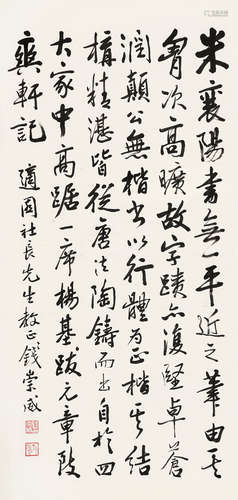 米襄陽書無一平近之筆由其
胷次高曠故字蹟亦復堅卓蒼
潤顛公無楷書以行體為正楷其結
構精湛皆從唐法陶鑄而出自於四
大家中高踞一席楊基跋元章跋
爽軒記
適園社長先生教正錢崇威